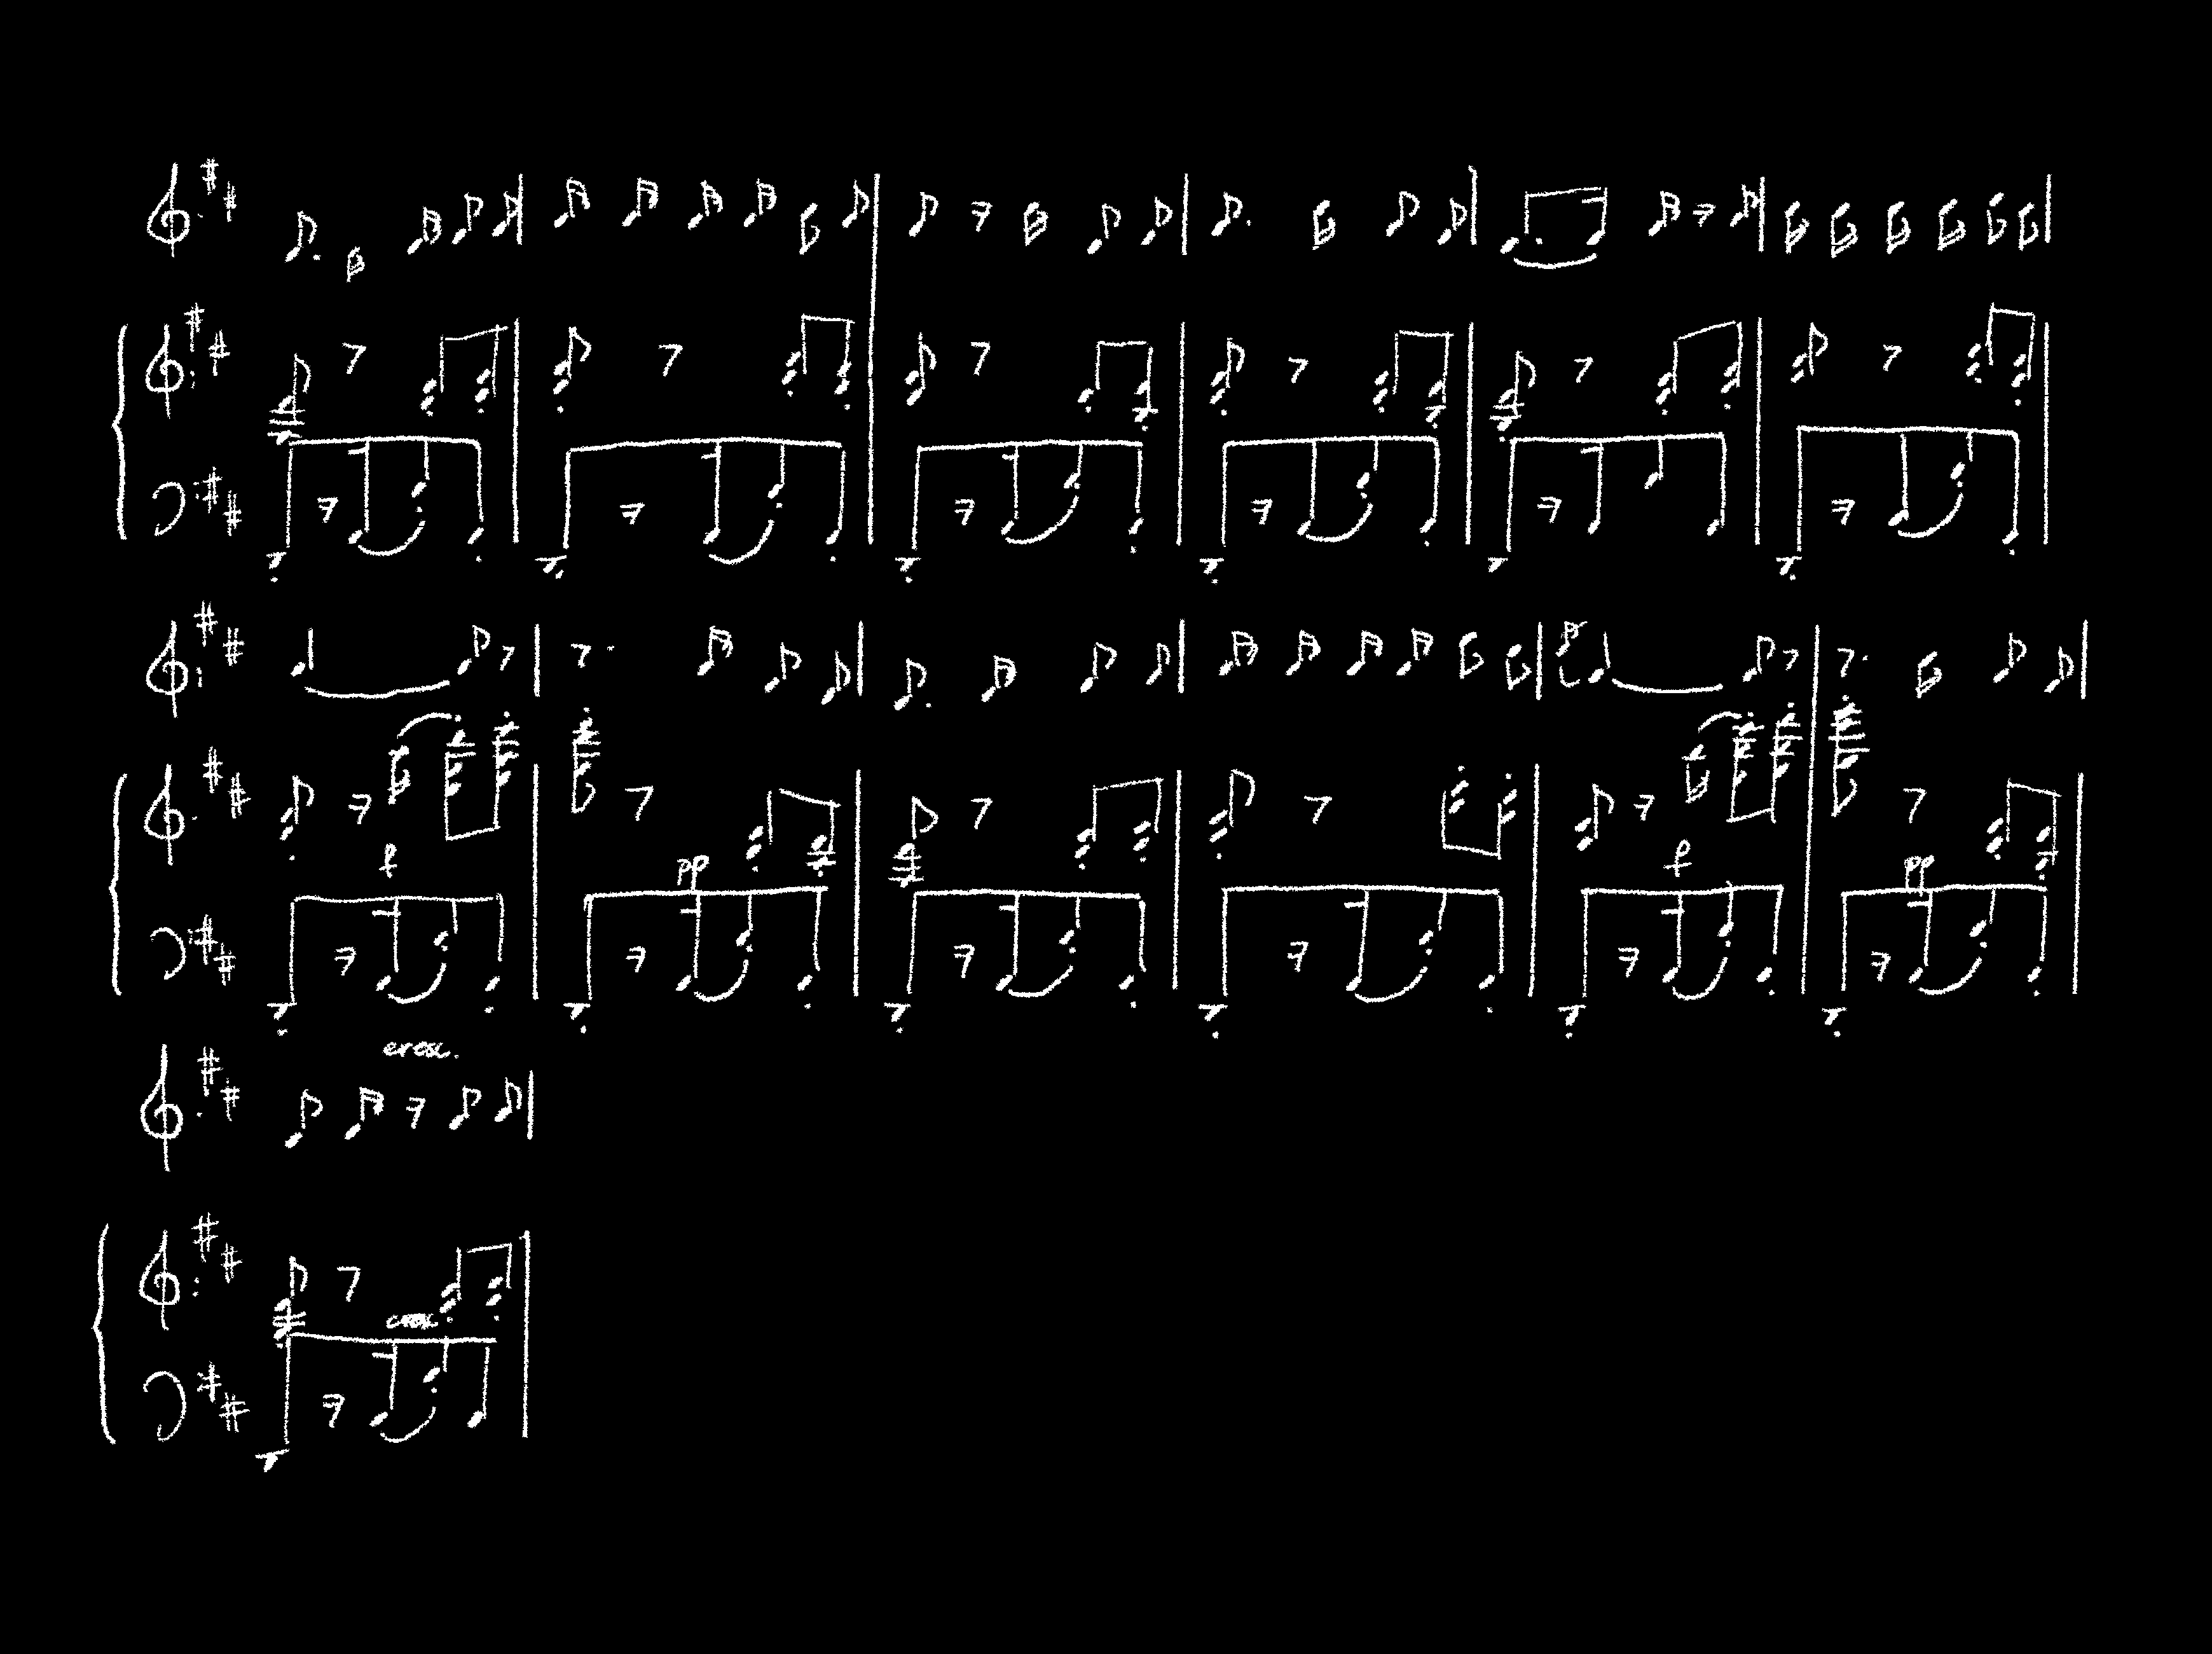 f
f
pp
pp
cresc.
cresc